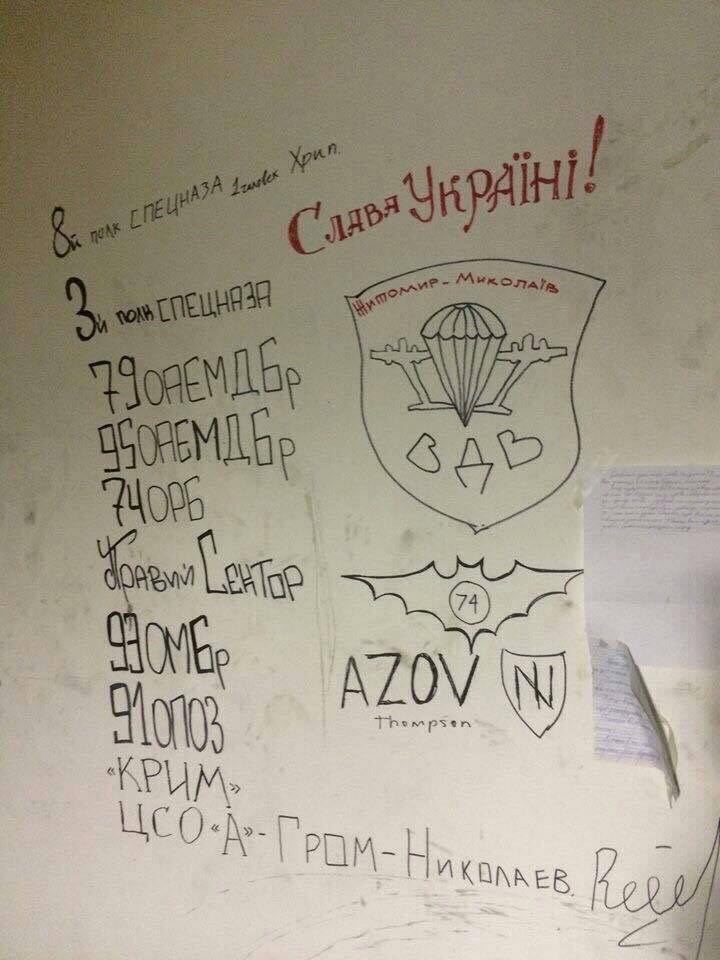 8й полк СПЕЦНАЗА 1 человек Хрип.
Слава Україні!
3й полк СПЕЦНАЗА
Житомир - Миколаїв
79ОАЕМДБр
95ОАЕМДБр
ВДВ
74ОРБ
Правий Сектор
74
93ОМБр
AZOV
N
Thompson
91ОПОЗ
«КРИМ»
ЦСО «А» - ГРОМ - НИКОЛАЕВ.